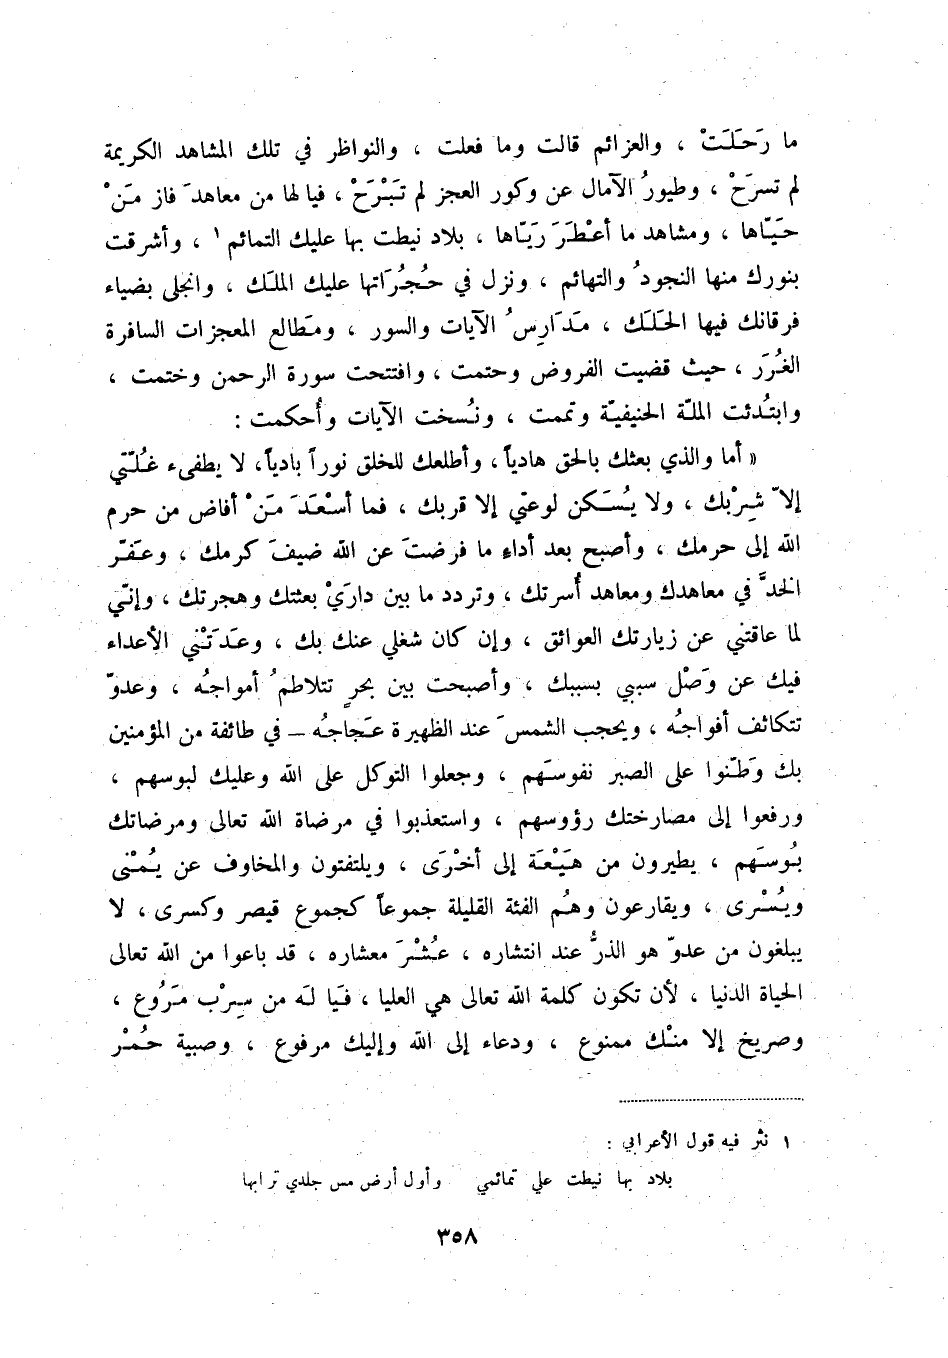 ما رَحَلَتْ ، والعزائم قالت وما فعلت ، والنواظر في تلك المشاهد الكريمة
لم تسرَحْ ، وطيورُ الآمال عن وكور العجز لم تَبْرَحْ ، فيا لها من معاهدَ فاز مَنْ
حَيّاها ، ومشاهد ما أعْطَرَ رَيّاها ، بلاد نيطت بها عليك التمائم ١ ، وأشرقت
بنورك منها النجودُ والتهائم ، ونزل في حُجُرَاتها عليك الملَك ، وانجلى بضياء
فرقانك فيها الحَلَك ، مَدَارِسُ الآيات والسور ، ومَطالع المعجزات السافرة
الغُرَر ، حيث قضيت الفروض وحتمت ، وافتتحت سورة الرحمن وختمت ،
وابتُدئت الملّة الحنيفيّة وتممت ، ونُسخت الآيات وأُحكمت :
« أما والذي بعثك بالحق هادياً ، وأطلعك للخلق نوراً بادياً ، لا يطفىء غُلّتي
إلاّ شِرْبك ، ولا يُسَكن لوعتي إلا قربك ، فما أسْعَدَ مَنْ أفاض من حرم
الله إلى حرمك ، وأصبح بعد أداء ما فرضتَ عن الله ضيفَ كرمك ، وعَفّر
الخدَّ في معاهدك ومعاهد أُسرتك ، وتردد ما بين داريْ بعثتك وهجرتك ، وإنّي
لما عاقتني عن زيارتك العوائق ، وإن كان شغلي عنك بك ، وعَدَتْني الأعداء
فيك عن وَصْل سببي بسببك ، وأصبحت بين بحرٍ تتلاطمُ أمواجُه ، وعدوّ
تتكاثف أفواجُه ، ويحجب الشمسَ عند الظهيرة عَجاجُه – في طائفة من المؤمنين
بك وَطّنوا على الصبر نفوسَهم ، وجعلوا التوكل على الله وعليك لبوسهم ،
ورفعوا إلى مصارختك رؤوسهم ، واستعذبوا في مرضاة الله تعالى ومرضاتك
بُوسَهم ، يطيرون من هَيْعَة إلى أخْرَى ، ويلتفتون والمخاوف عن يُمْنى
ويُسْرى ، ويقارعون وهُم الفئة القليلة جموعاً كجموع قيصر وكسرى ، لا
يبلغون من عدوّ هو الذرُّ عند انتشاره ، عُشْرَ معشاره ، قد باعوا من الله تعالى
الحياة الدنيا ، لأن تكون كلمة الله تعالى هي العليا ، فَيا لَه من سِرْب مَرُوع ،
وصريخ إلا منْك ممنوع ، ودعاء إلى الله وإليك مرفوع ، وصبية حُمْر
١ نثر فيه قول الأعرابي :
بلاد بها نيطت علي تمائمي وأول أرض مس جلدي ترابها
٣٥٨